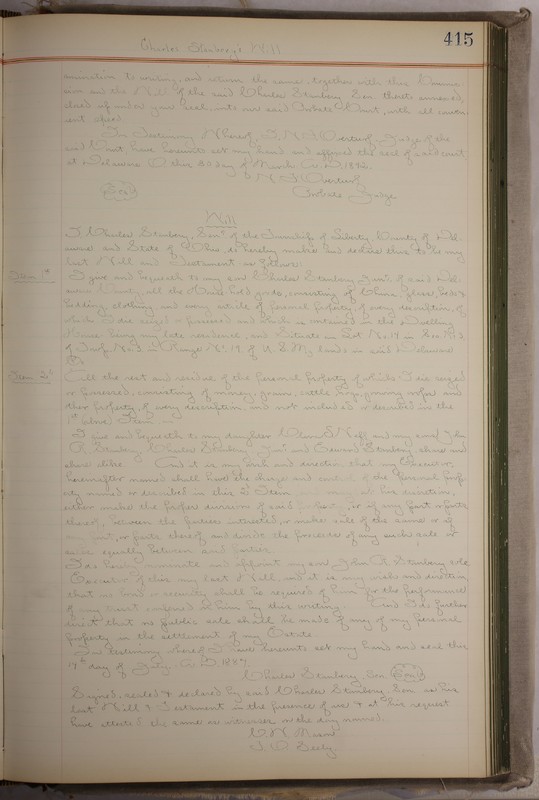 415
Charles Stanbery's Will
amination to writing, and return the same together with this Commis-
sion and the Will of the said Charles Stanbery Sen. thereto annexed,
closed up under your seal, into our said Probate Court, with all conven-
ient speed.
In Testimony Whereof, I, Overturf, Judge of the
said Court have hereunto set my hand and affixed the seal of said court
at Delaware O this 30 day of March A.D. 1892.
Overturf
Seal
Probate Judge
Will
I, Charles Stanbery, Senr. of the Township of Liberty, County of Del-
aware and State of Ohio, do hereby make and declare this to be my
last Will and Testament as follows:
Item 1st
I give and bequeath to my son Charles Stanbery Junr. of said Del-
aware County, all the House hold goods, consisting of China, Glass, beds &
bedding, clothing, and every article of personal property, of every description, of
which I die seized or possessed and which is contained in the Dwelling
House being my late residence, and situate in Lot No 14 in Sec No 2
of Twp. No 3 in Range No 19 of U.S.M. lands in said Delaware
Co.
Item 2d
All the rest and residue of the personal property of which I die seized
or possessed, consisting of money, grain, cattle, hogs, growing crops and
other property, of every description, and not included or described in the
1st above Item
I give and bequeath to my daughter Neff and my sons John
A. Stanbery, Charles Stanbery Junr and Edward Stanbery share and
share alike. And it is my wish and direction that my Executor,
hereinafter named shall have the charge and control of the personal prop-
erty named or described in this 2d Item, and may at his discretion,
either make the proper division of said property, or of any part or parts
thereof, between the parties interested, or make sale of the same or of
any part, or parts thereof, and divide the proceeds of any such sale or
sales equally between said parties.
I do hereby nominate and appoint my son John A. Stanbery sole
Executor of this my last Will, and it is my wish and direction,
that no bond or security shall be required of him for the performance
of any trust confered on him by this writing. And I do further
direct that no public sale shall be made of any of my personal
property in the settlement of my Estate.
In testimony whereof I have hereunto set my hand and seal this
19th day of July A.D. 1887.
Charles Stanbery, Sen. Seal
Signed, sealed & declared by said Charles Stanbery, Sen. as his
last Will & Testament in the presence of us & at his request
have attested the same as witnesses on the day named.
Mason
Seely